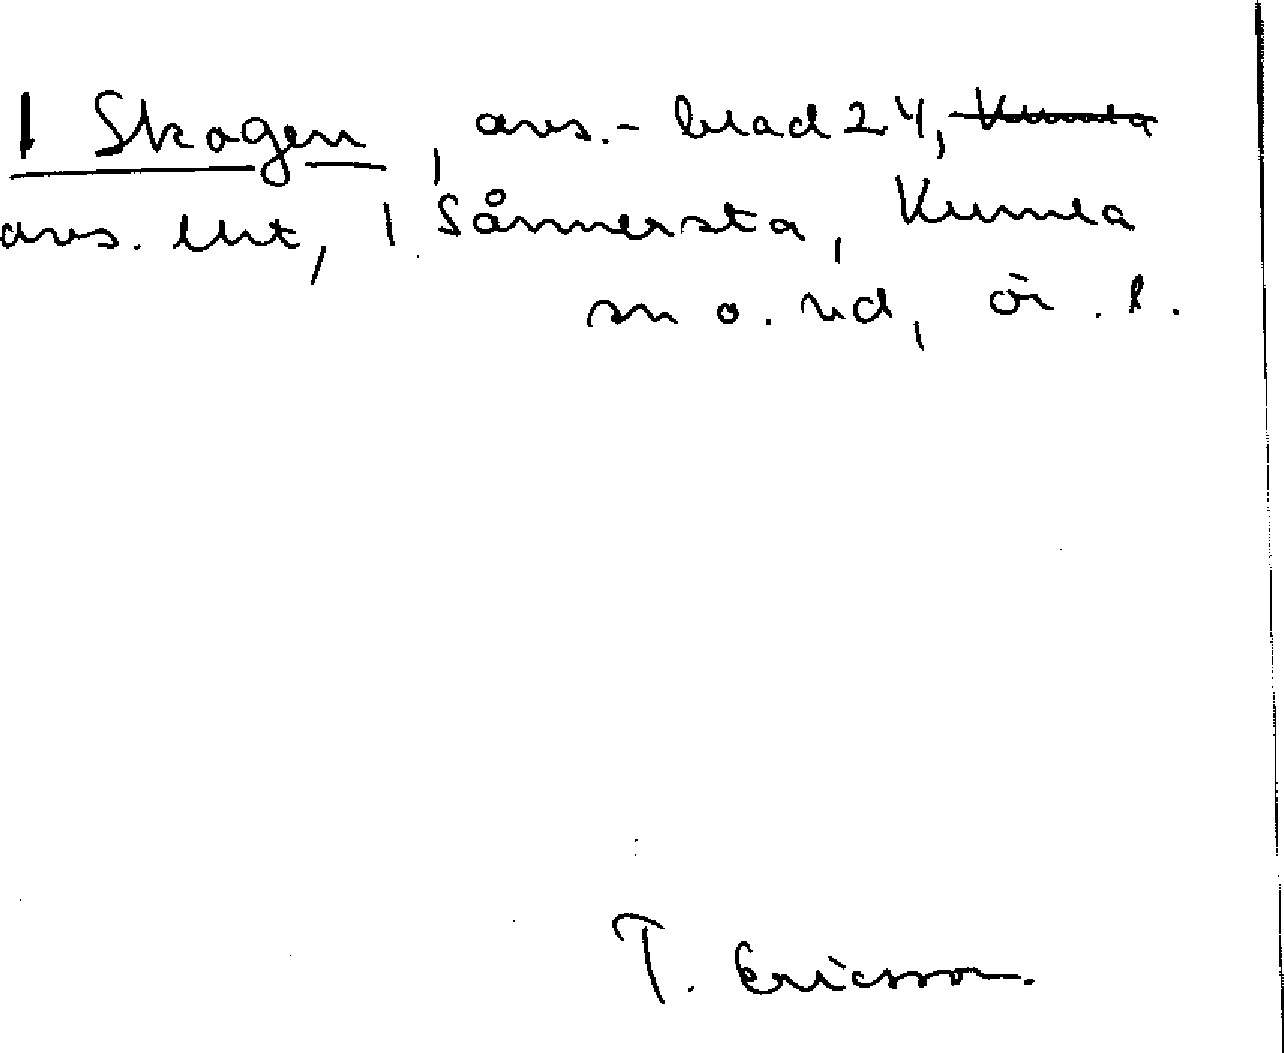 1 Skogen, avs.-blad 24, Kumla
avs. lht, 1 Sånnersta, Kumla
sn o. hd, ör. l.
T. Ericsson.